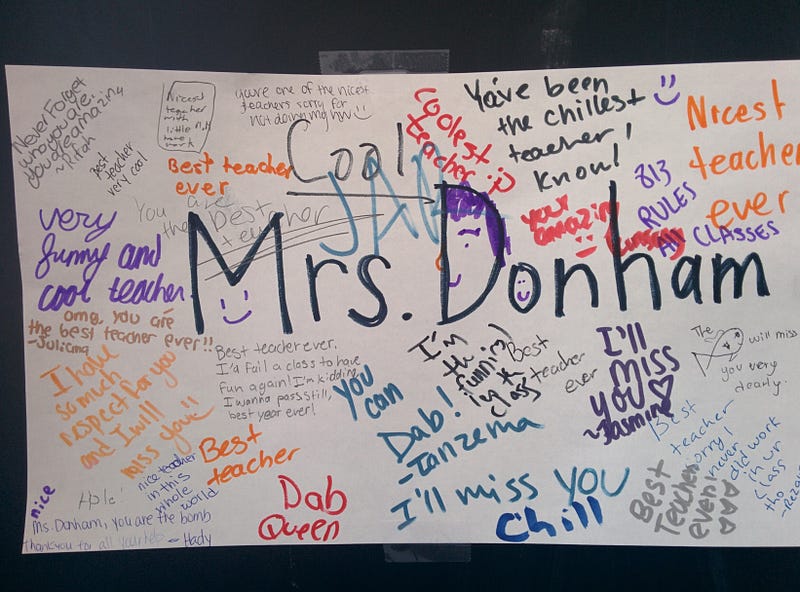 Never Forget
who you are.
you are amazing
~Rifah
Best
teacher
very cool
Nicest
teacher
with
little
home
work
you're one of the nicest
teachers sorry for
not doing my hw
Coolest
teacher :)
You've been
the chillest
teacher I
know!
Nicest
teacher
ever
813
RULES
All CLASSES
Best teacher
ever
You are
the best
teacher
Cool
JAN
your
amazing
very
funny and
cool teacher
Mrs. Donham
omg, you are
the best teacher ever!!
-Juliana
I have
so much
respect for you
and I will
miss you!!
Best teacher ever.
I'd fail a class to have
fun again! I'm kidding
I wanna pass still,
best year ever!
You
can
Dab!
-Tanzema
I'm
the
funniest
in the
class
Best
teacher
ever
I'll
miss
you
~Jasmine
The will miss
you very
dearly.
Best
teacher
sorry I
never
did work
in ur
class
tho
Best
teacher
nice teacher
in this
whole
world
nice
Hole!
Ms. Donham, you are the bomb
Thank you for all your help - Hady
Dab
Queen
I'll miss you
Chill
Best
Teacher
even